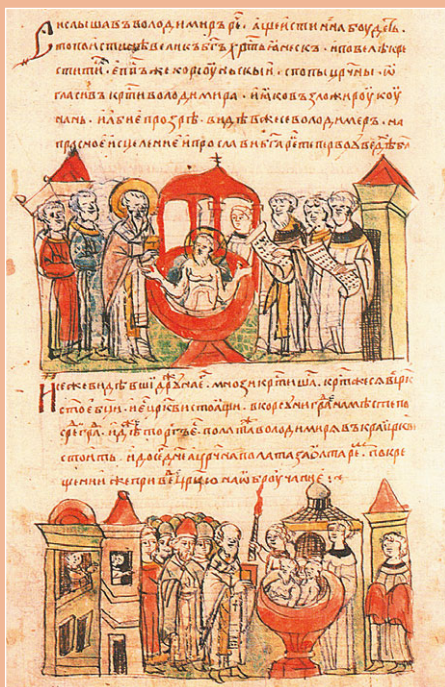 слышавъ володимиръ рⷱе . аще истинна боудеть
то поистинѣ великъ бг҃ъ хрⷭтьꙗнескъ . и повелѣ кре
ститиⷭ . епⷭпъ же корсоуньскыи . с попы црⷭчны . ѡ
гласивъ крⷭти володимира . и ꙗко възложи роукоу
на нь . и абие прозрѣ . видѣвже се володимеръ . на
прасное исцеление и прослави бг҃а
се же видѣвши дружина е . мнози крⷭтишаⷭ . крⷭтижесѧ въ црк҃
стое бц҃и . и е црк҃ви стоѧщи . в корсуни граⷣ на мѣсте по
среⷣ граⷣ . идѣ торгъ . полата володимирѧ въ краи црк҃ве
стоить . и до сеⷢ дне а полата за олтареⷨ . по кре
щении же привеⷣ црⷭцю на ѡброучание :~